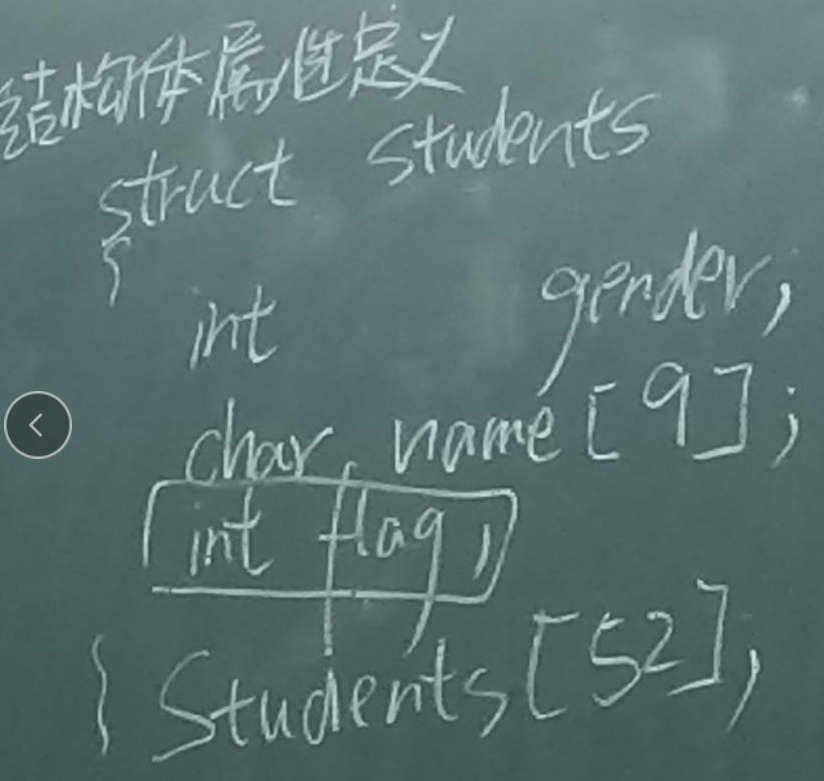 结构体属性定义
struct students
{
int gender,
char name[9];
int flag,
} Students[52],